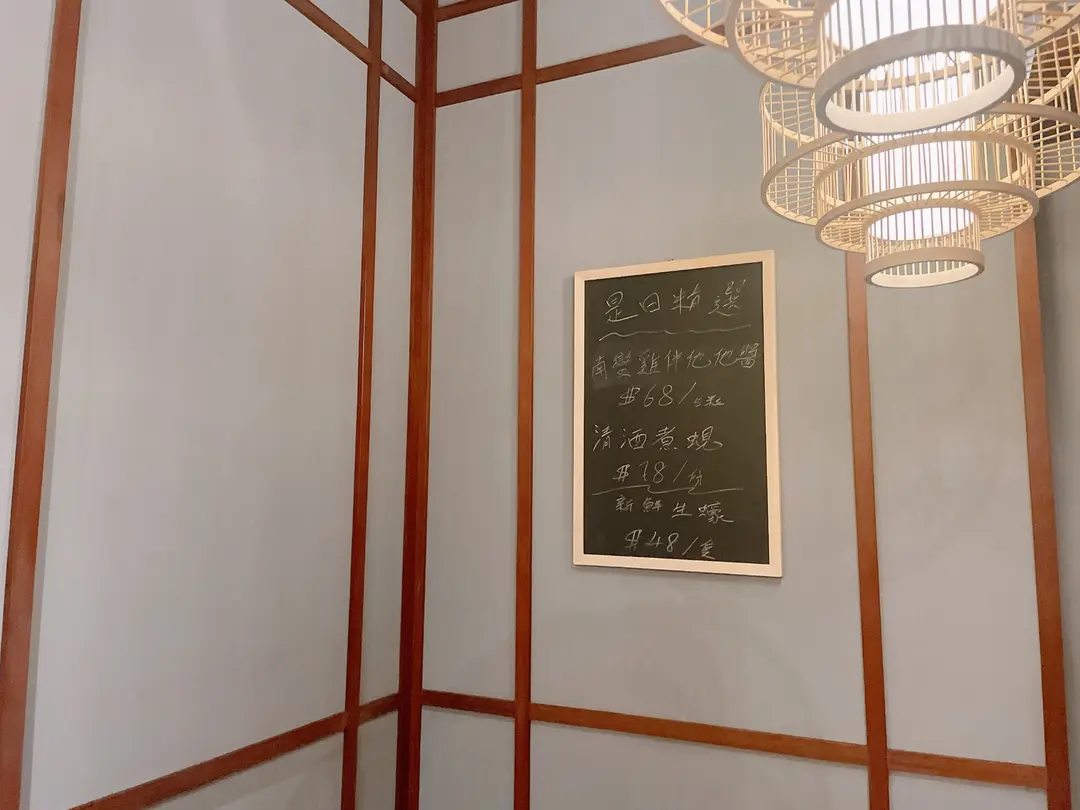 是日精選
南蠻雞伴他他醬
$68/5粒
清酒煮蜆
$78/份
新鮮生蠔
$48/隻